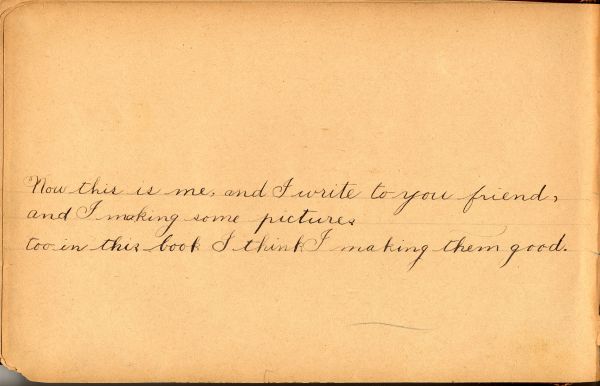 Now this is me, and I write to you friend,
and I making some pictures
too in this book I think I making them good.